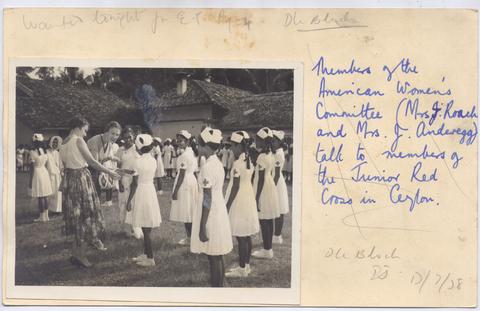 Wanted tonight for E.T. Pg 4
Dle Block
Members of the
American Women's
Committee (Mrs J. Roach
and Mrs. J. Anderegg)
talk to members of
the Junior Red
Cross in Ceylon.
Dle Block
DS
13/7/58